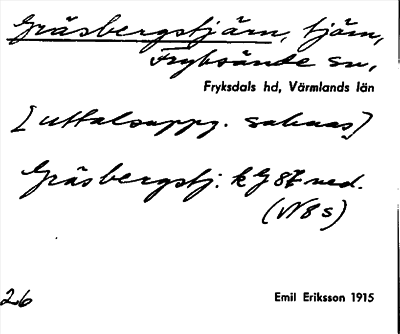 Gräsbergstjärn, tjärn,
Fryksände sn,
Fryksdals hd, Värmlands län
[uttalsuppg. saknas]
Gräsbergstj. kG 87 ned.
(VBs)
26
Emil Eriksson 1915